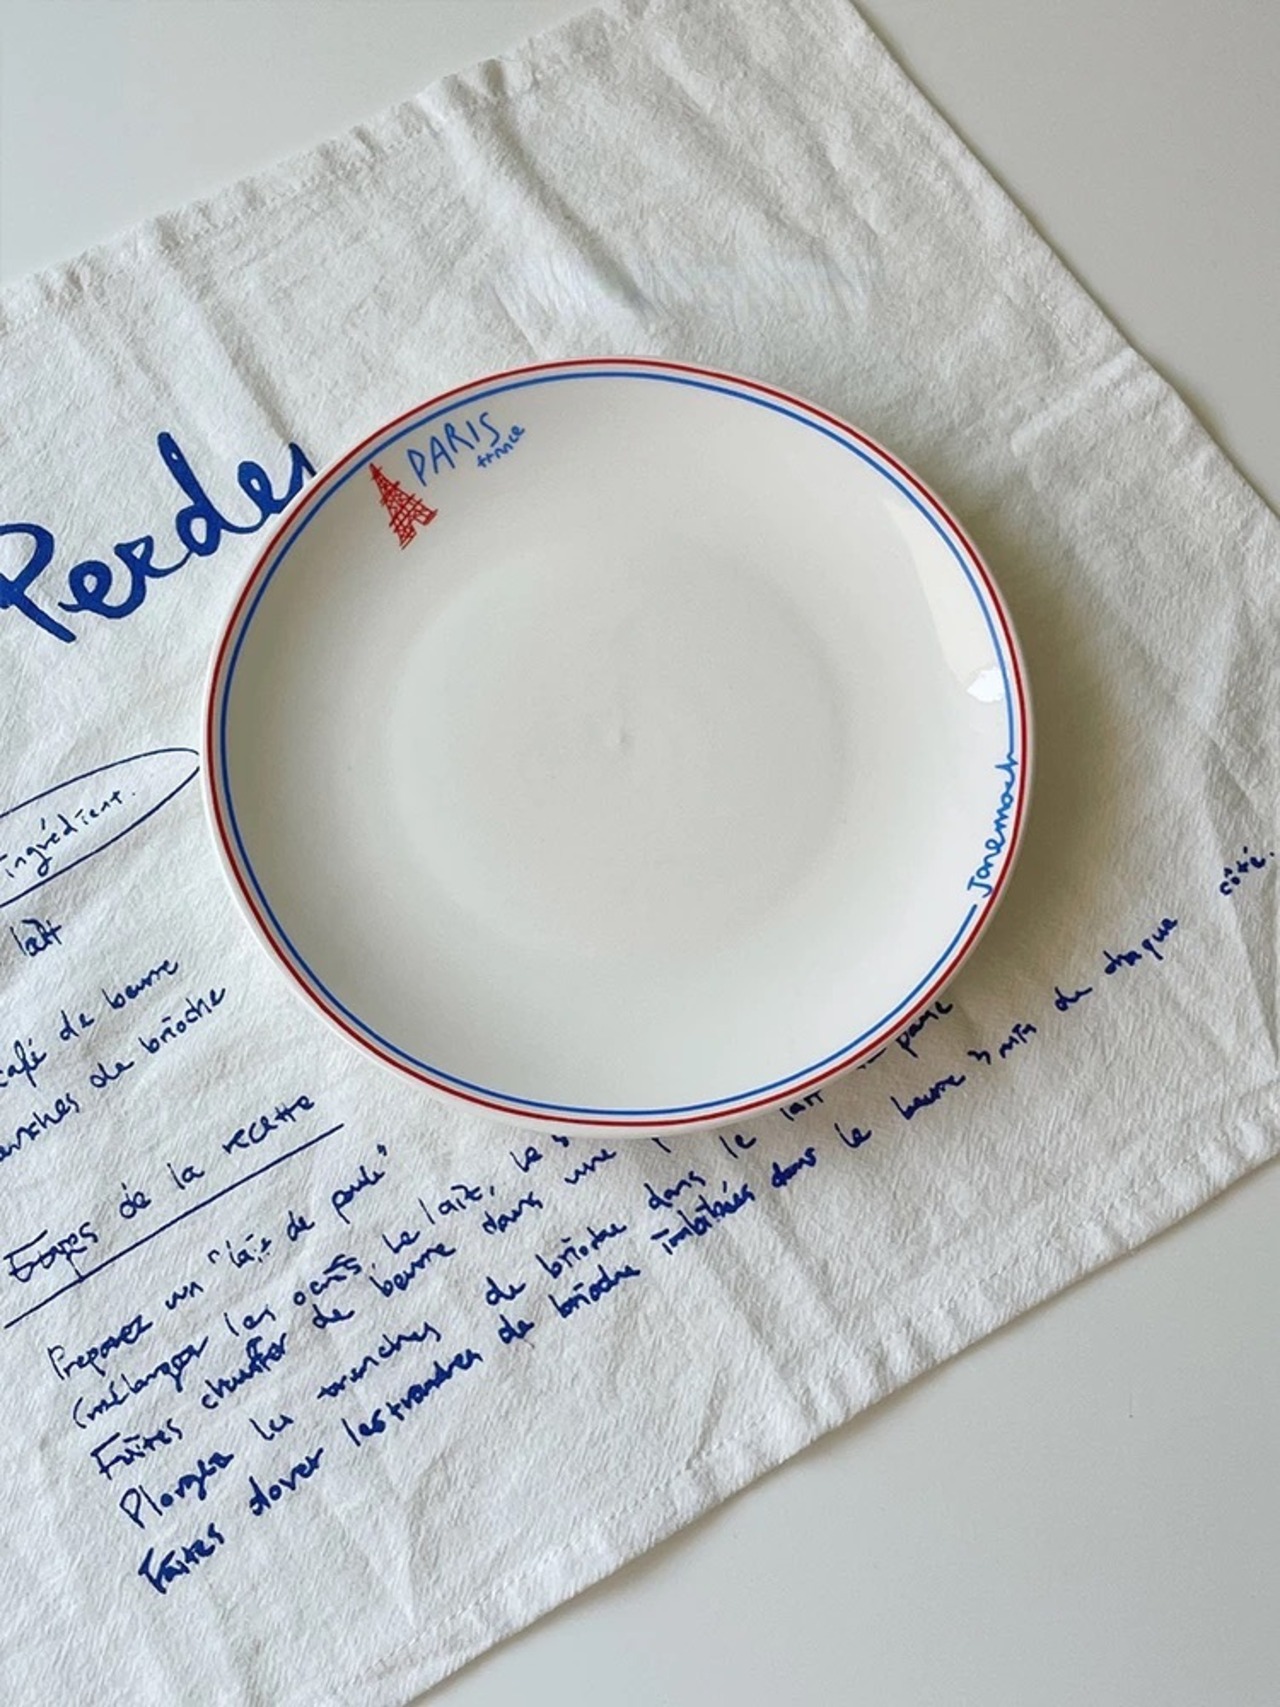 PARIS
france
Janemarch
Perdu
ingrédient.
lait
café de beurre
tranches de brioche
Etapes de la recette
Preparez un "lait de poule"
(mélanger les oeufs, le lait, le s
Faites chauffer de beurre dans une p
Plongez la trenches de brioche dans le lait
pane
Faites dorer les tranches de brioche imbibées dans le beurre 3 min de chaque côté.